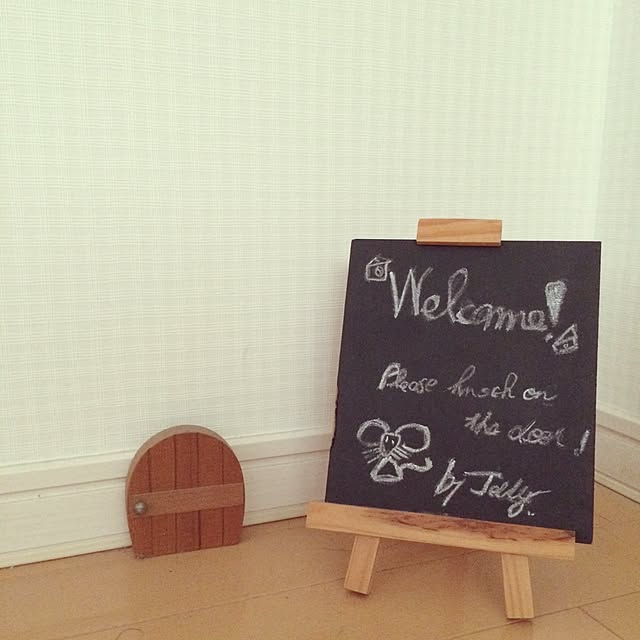 Welcome!
Please knock on
the door!
by Jelly